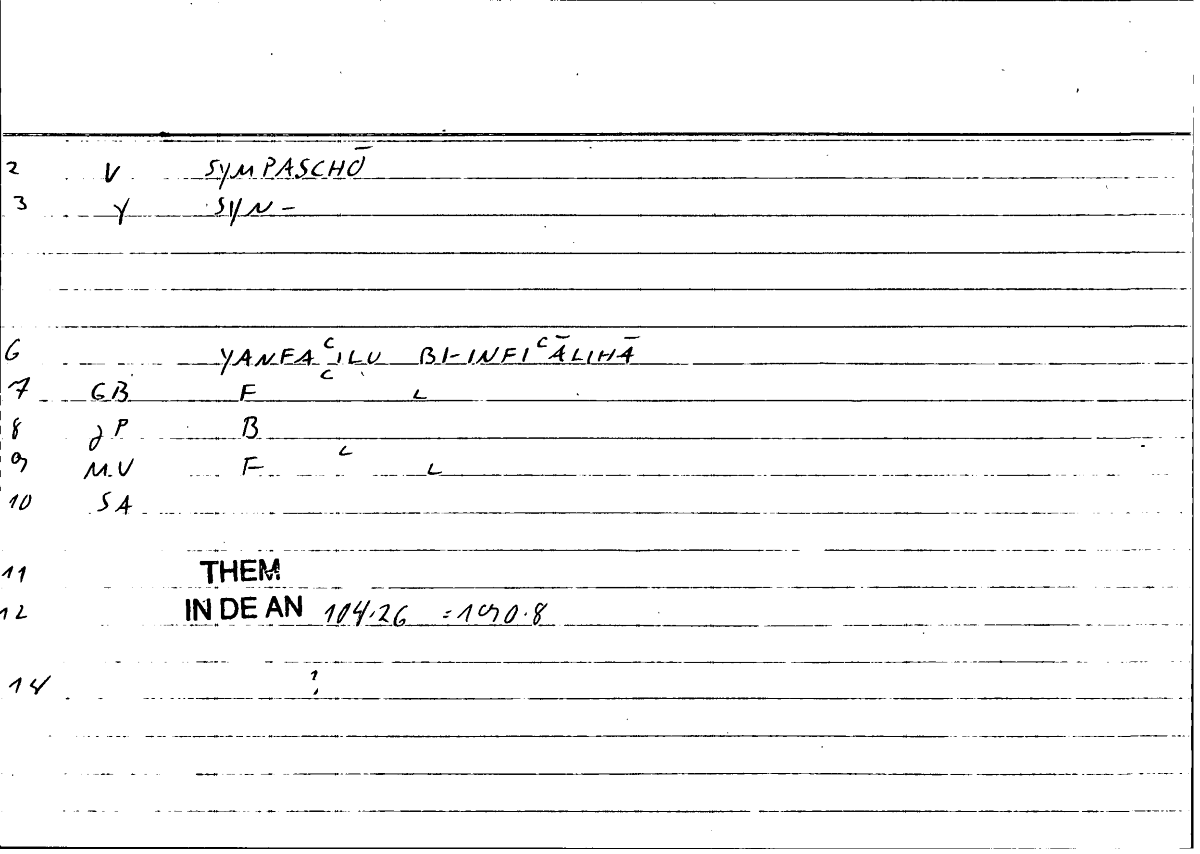 2 V SYMPASCHŌ
3 Y SYN-
6 YANFAʿILU BI-INFIʿĀLIHĀ
7 GB F ʿ L
8 JP B
9 M.V F ʿ L
10 SA
11 THEM
12 IN DE AN 104.26 =190.8
14 ?